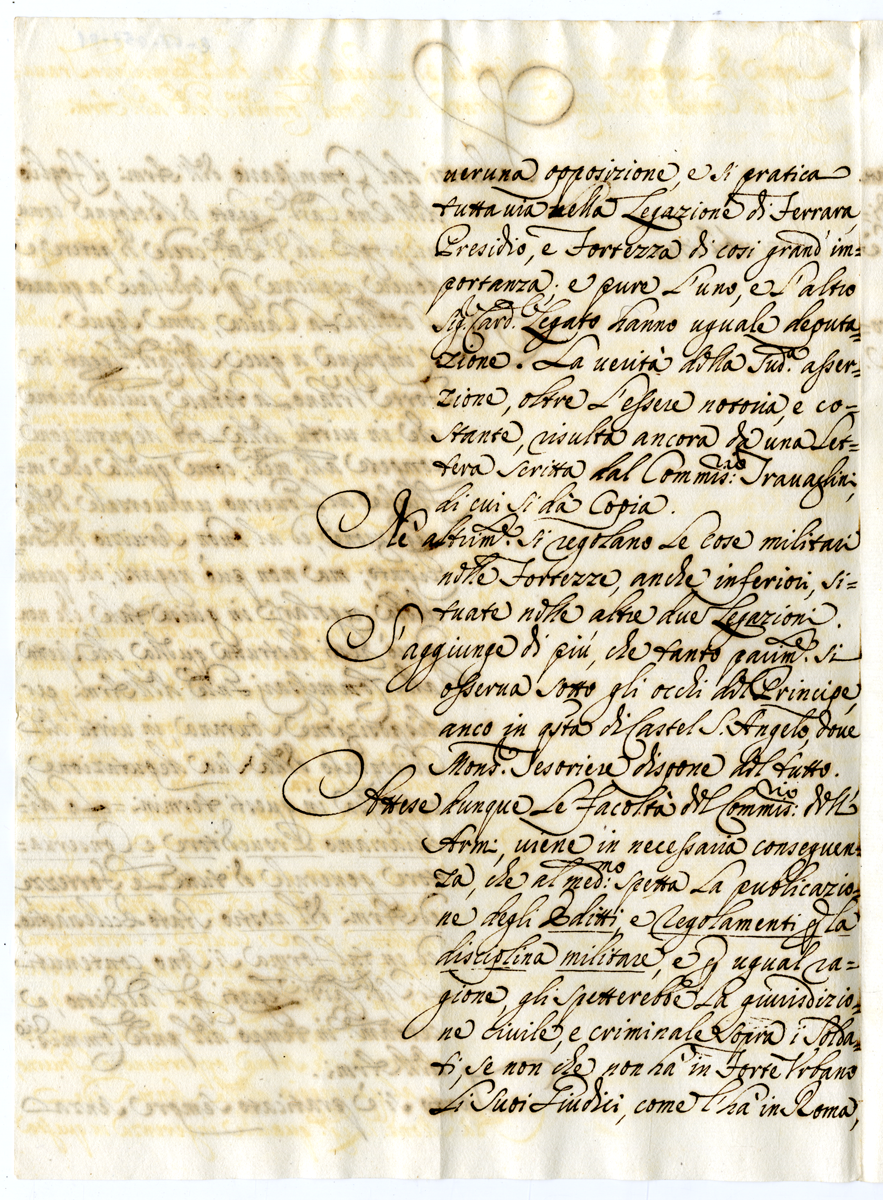 ueruna opposizione, e si pratica
tuttauia nella Legazione di Ferrara,
Presidio, e Fortezza di così grand' im=
portanza; e pure l'uno, e l'altro
Sig.r Card.le Legato hanno uguale deputa=
zione. La uerità della sud.a asser=
zione, oltre l'essere notoria, e co=
stante, risulta ancora da una Let=
tera scritta dal Commiss.rio Trauaglini,
di cui si dà Copia.
Nè altrim.te si regolano le cose militari
nelle Fortezze, anche inferiori, si=
tuate nelle altre due Legazioni.
S'aggiunge di più, che tanto parim.te si
osserua sotto gli occhi del Principe,
anco in q.sta di Castel S. Angelo, doue
Mons.r Tesoriere dispone del tutto.
Attese dunque le facoltà del Commiss.rio dell'
Armi, uiene in necessaria conseguen=
za, che al med.mo spetta la publicazio=
ne degli Editti, e regolamenti p la
disciplina militare, e p ugual ra=
gione, gli spetterebbe la giurisdizio=
ne ciuile, e criminale sopra i Solda=
ti, se non che non hà in Forte Vrbano
li suoi Giudici, come l'hà in Roma,